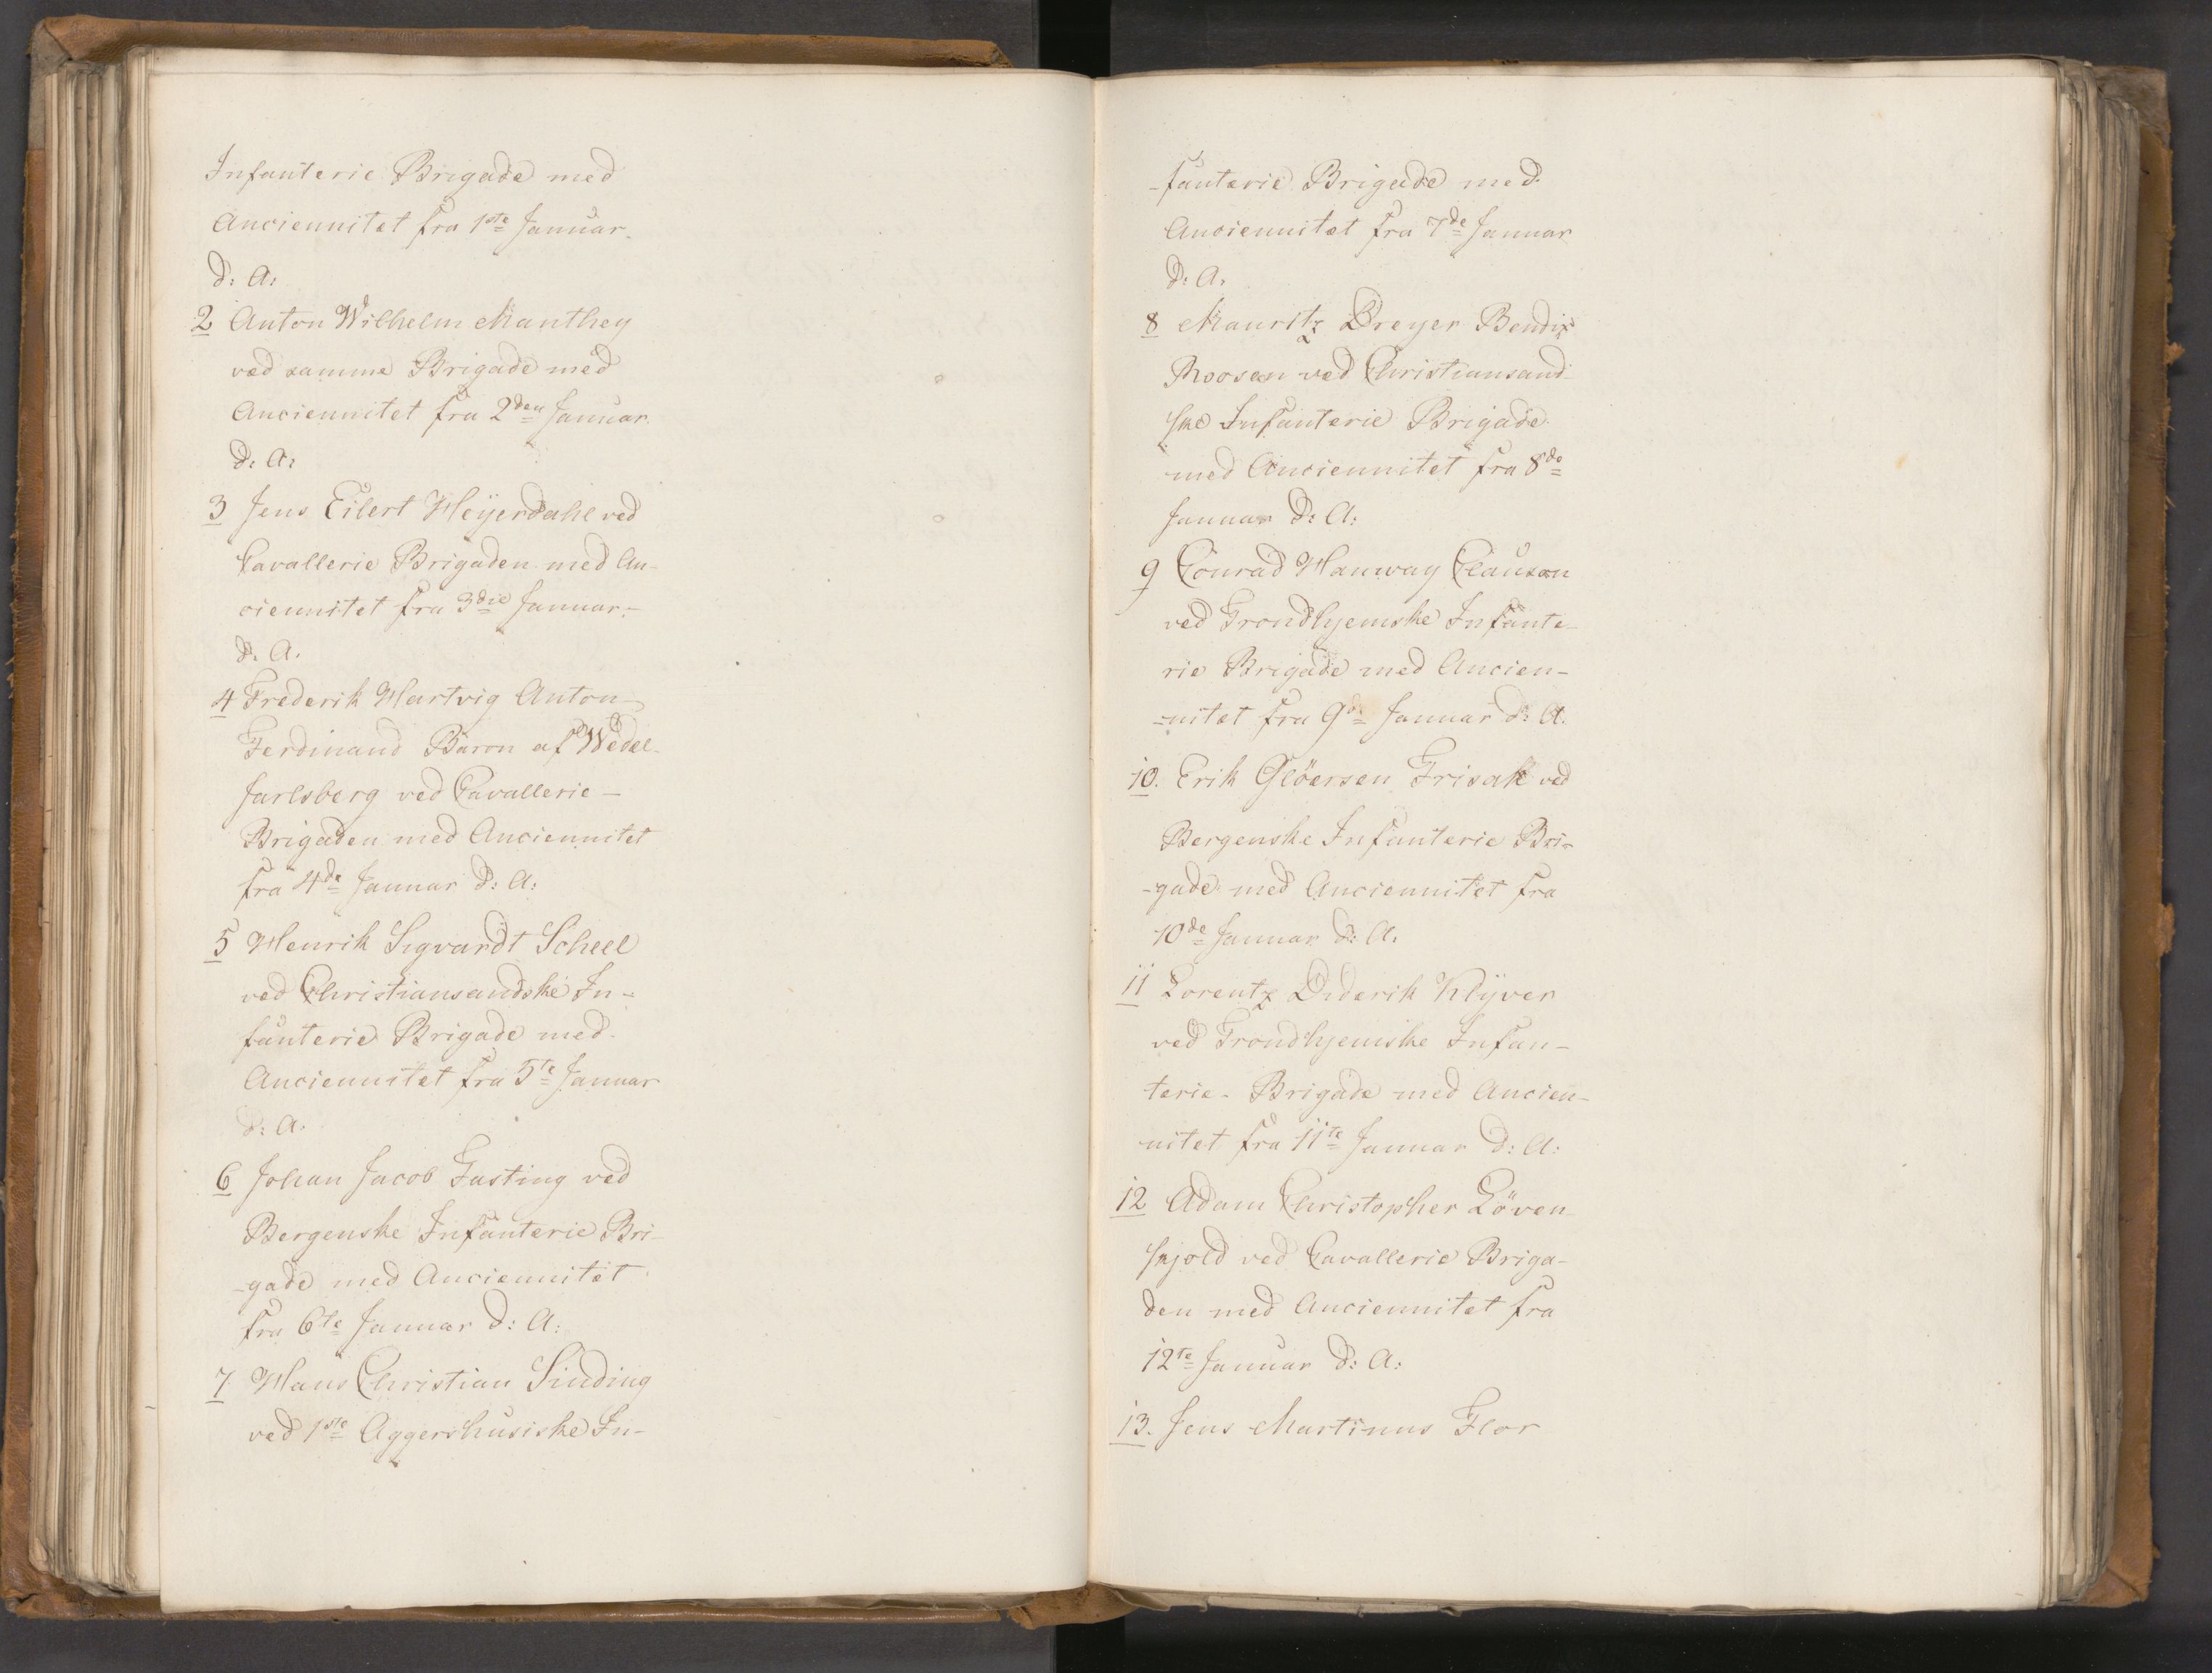 Infanterie Brigade med
Anciennitet fra 1ste Januar
d: A:
2 Anton Wilhelm Manthey
ved samme Brigade med
Anciennitet fra 2den Januar
d: A:
3 Jens Eilert Heyerdahl ved
Cavallerie Brigaden med An-
ciennitet fra 3die Januar-
d. A.
4 Frederik Hartvig Anton
Ferdinand Baron af Wedel
Jarlsberg ved Cavallerie-
Brigaden med Anciennitet
fra 4de Januar d: A:
5 Henrik Sigvardt Scheel
ved Christiansandske In-
fanterie Brigade med
Anciennitet fra 5te Januar
d: A.
6 Johan Jacob Fasting ved
Bergenske Infanterie Bri-
-gade med Anciennitet
fra 6te Januar d: A:
7 Hans Christian Sinding
ved 1ste Aggershusiske In-
-fanterie Brigade med
Anciennitet fra 7de Januar
d: A.
8 Mauritz Dreyer Bendix
Moosen ved Christiansand-
ske Infanterie Brigade
med Anciennitet fra 8de
Januar d: A:
9 Conrad Hanway Clauson
ved Trondhjemske Infante-
rie Brigade med Ancien-
-nitet fra 9de Januar d: A.
10. Erik Glöersen Frisak ved
Bergenske Infanterie Bri-
-gade med Anciennitet fra
10de Januar d: A.
11 Lorentz Diderik Klÿver
ved Trondhjemske Infan-
terie-Brigade med Ancien-
nitet fra 11te Januar d: A:
12 Adam Christopher Löven
skjold ved Cavallerie Briga-
den med Anciennitet fra
12te Januar d: A:
13. Jens Martinus Flor